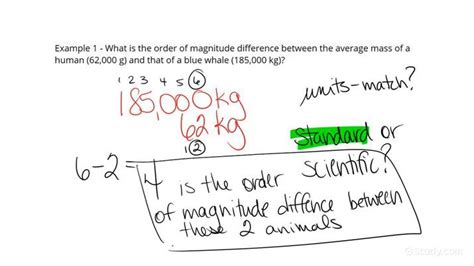 Example 1 - What is the order of magnitude difference between the average mass of a
human (62,000 g) and that of a blue whale (185,000 kg)?
1 2 3 4 5 6
185,000 kg
62 kg
1 2
units-match?
Standard or
scientific?
6-2=4 is the order
of magnitude diffence between
these 2 animals
Study.com